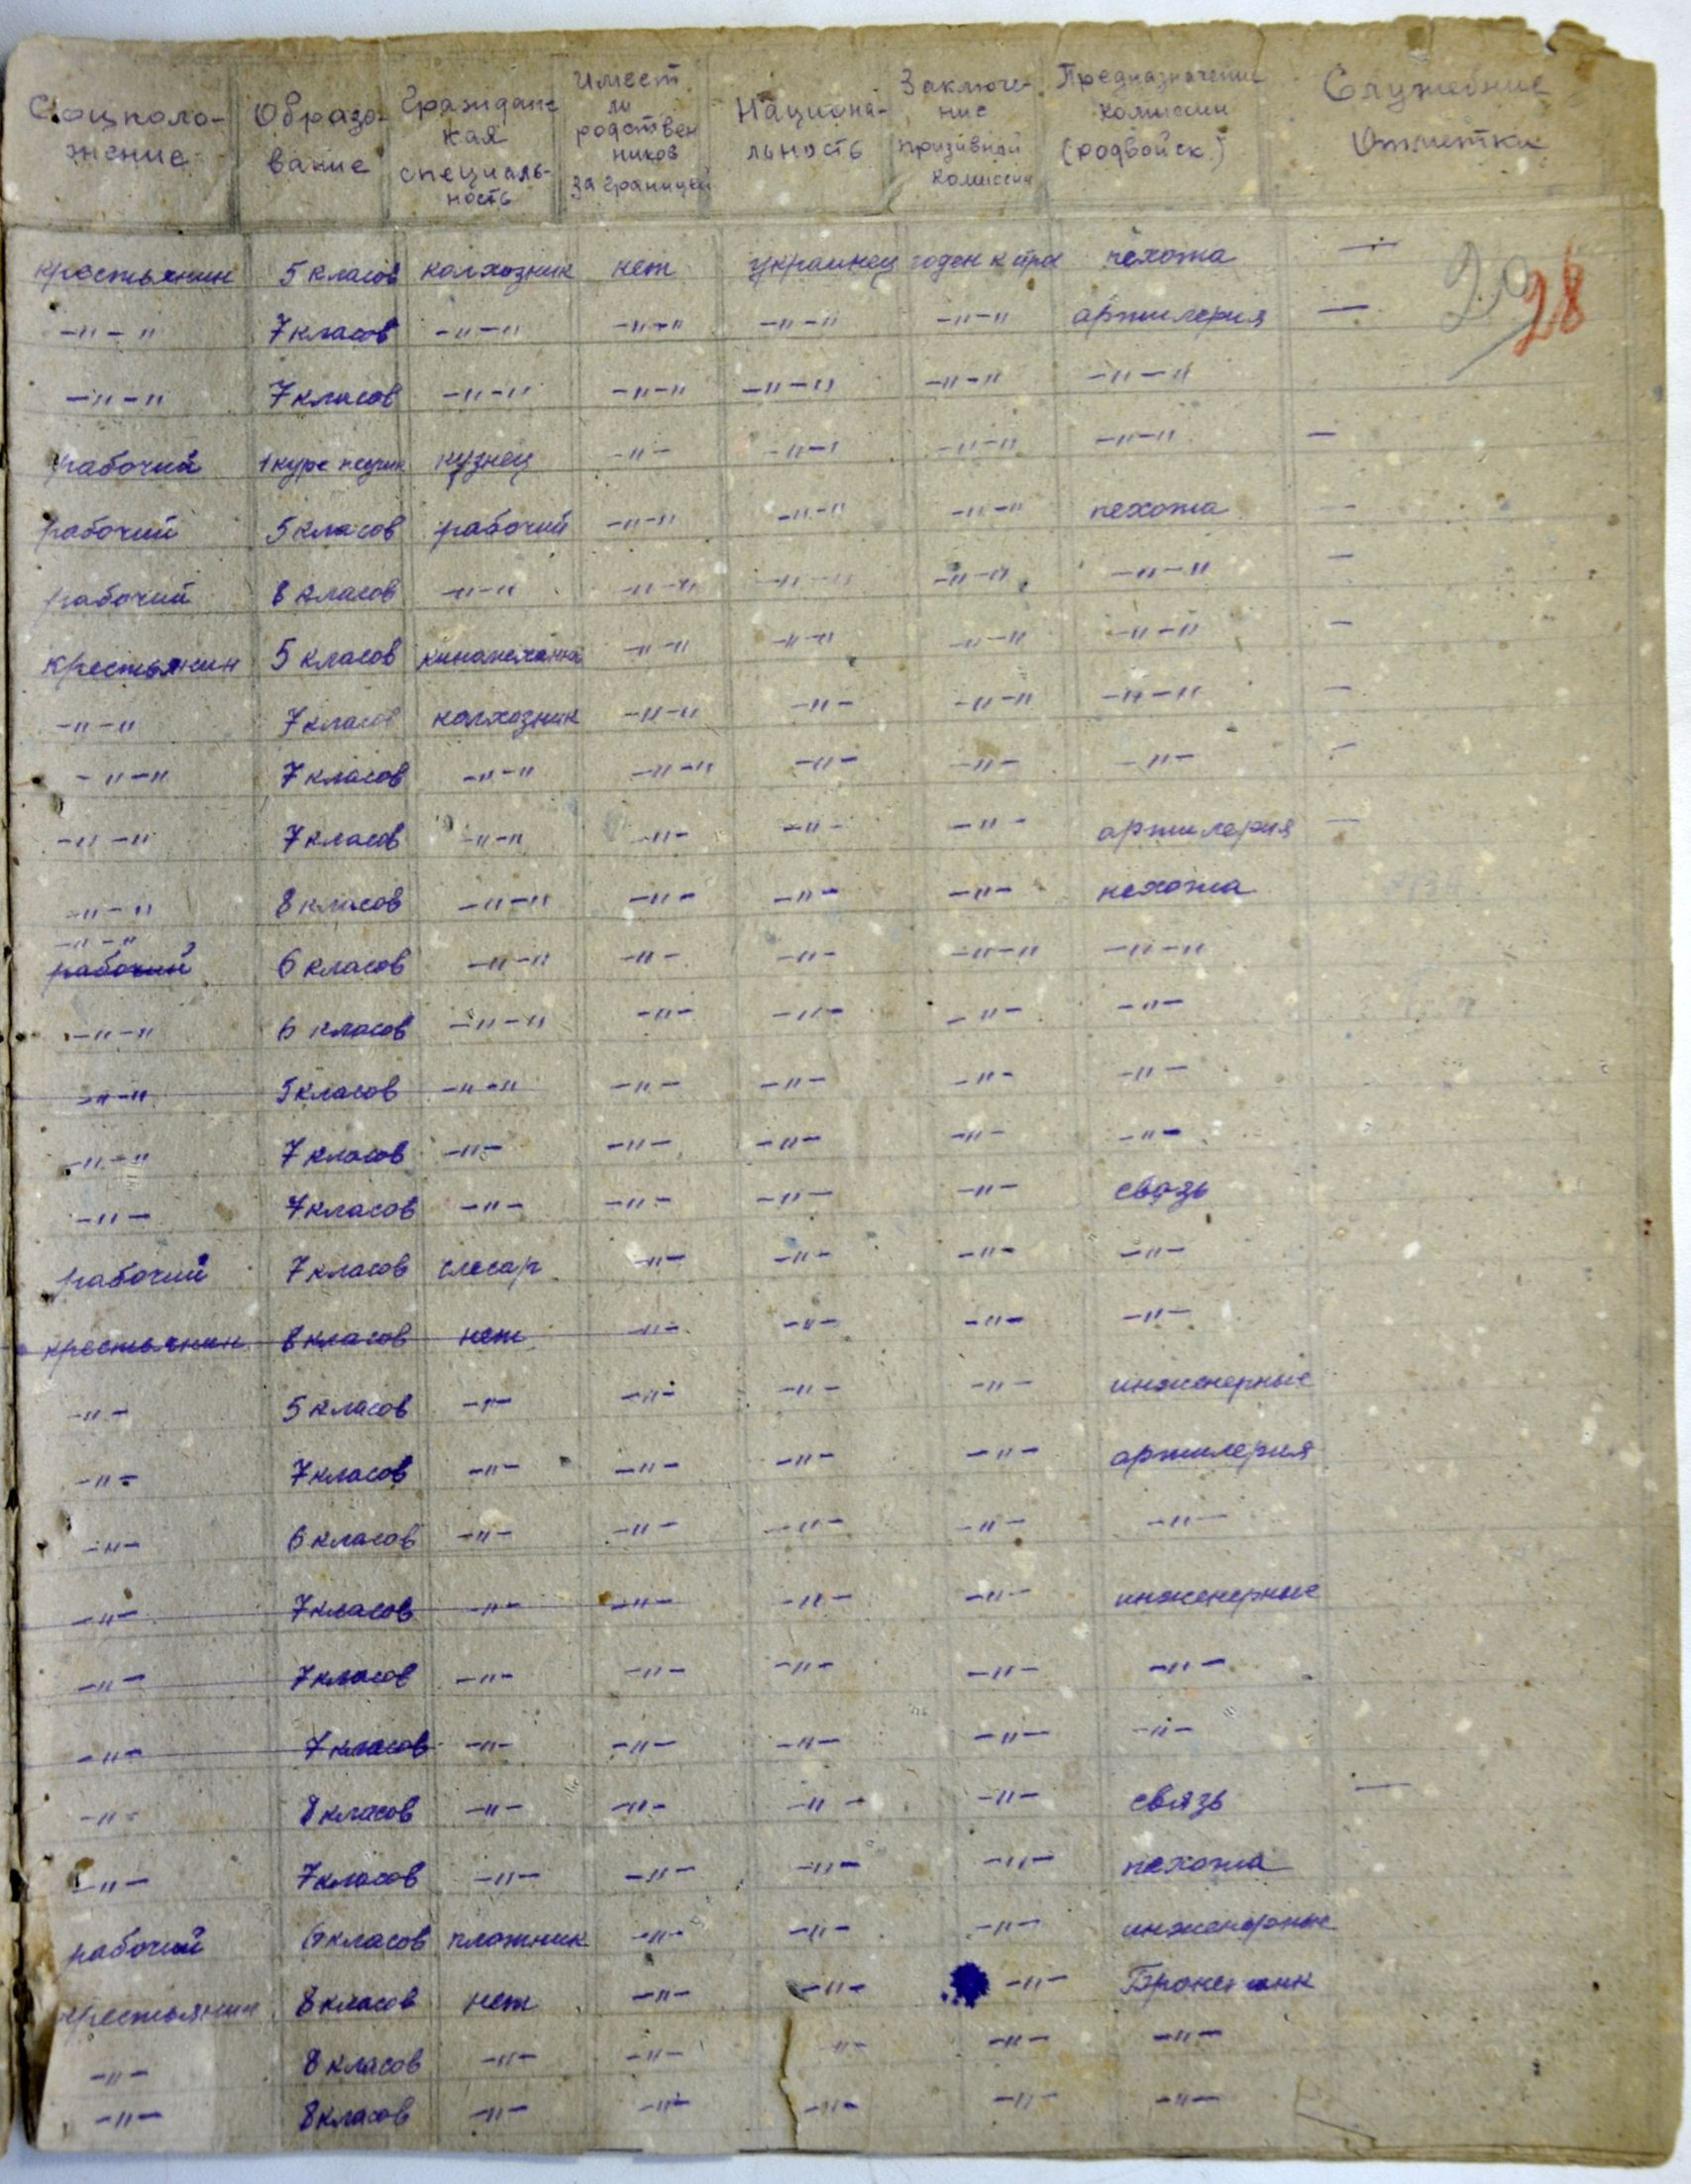 Соцполо-
жение
Образо-
вание
Граждан-
кая
специаль-
ность
Имеет
ли
родствен
ников
за границей
Национа-
льность
Заключе-
ние
призивной
комиссии
Предназначение
комиссии
(родвойск)
Служебние
Отметки
крестьянин 5 класов колхозник нет украинец годен к пехота —
29 28
-"-" 7 класов -"-" -"-" -"-" -"-" артилерия —
-"-" 7 класов -"-" -"-" -"-" -"-" -"-"
рабочий 1 курс кузнец -"- -"-" -"-" -"-" —
рабочий 5 класов рабочий -"-" -"-" -"-" пехота —
рабочий 8 класов -"-" -"-" -"-" -"-" -"-" —
крестьянин 5 класов киномеханик -"-" -"-" -"-" -"-" —
-"-" 7 класов колхозник -"-" -"- -"-" -"-" —
-"-" 7 класов -"-" -"-" -"- -"- -"- —
-"-" 7 класов -"-" -"- -"- -"- артилерия —
-"-" 8 класов -"-" -"- -"- -"- пехота
-"-"
рабочий 6 класов -"-" -"- -"- -"-" -"-"
-"-" 6 класов -"-" -"- -"- -"- -"-
-"-" 5 класов -"-" -"- -"- -"- -"-
-"-" 7 класов -"- -"- -"- -"- -"-
-"- 7 класов -"- -"- -"- -"- связь
рабочий 7 класов слесар -"- -"- -"- -"-
крестьянин 8 класов нет -"- -"- -"- -"-
-"- 5 класов -"- -"- -"- -"- инженерные
-"- 7 класов -"- -"- -"- -"- артилерия
-"- 6 класов -"- -"- -"- -"- -"-
-"- 7 класов -"- -"- -"- -"- инженерные
-"- 7 класов -"- -"- -"- -"- -"-
-"- 7 класов -"- -"- -"- -"- -"-
-"- 8 класов -"- -"- -"- -"- связь —
-"- 7 класов -"- -"- -"- -"- пехота
рабочий 6 класов плотник -"- -"- -"- инженерные
крестьянин 8 класов нет -"- -"- -"- Бронетанк
-"- 8 класов -"- -"- -"- -"- -"-
-"- 8 класов -"- -"- -"- -"- -"-